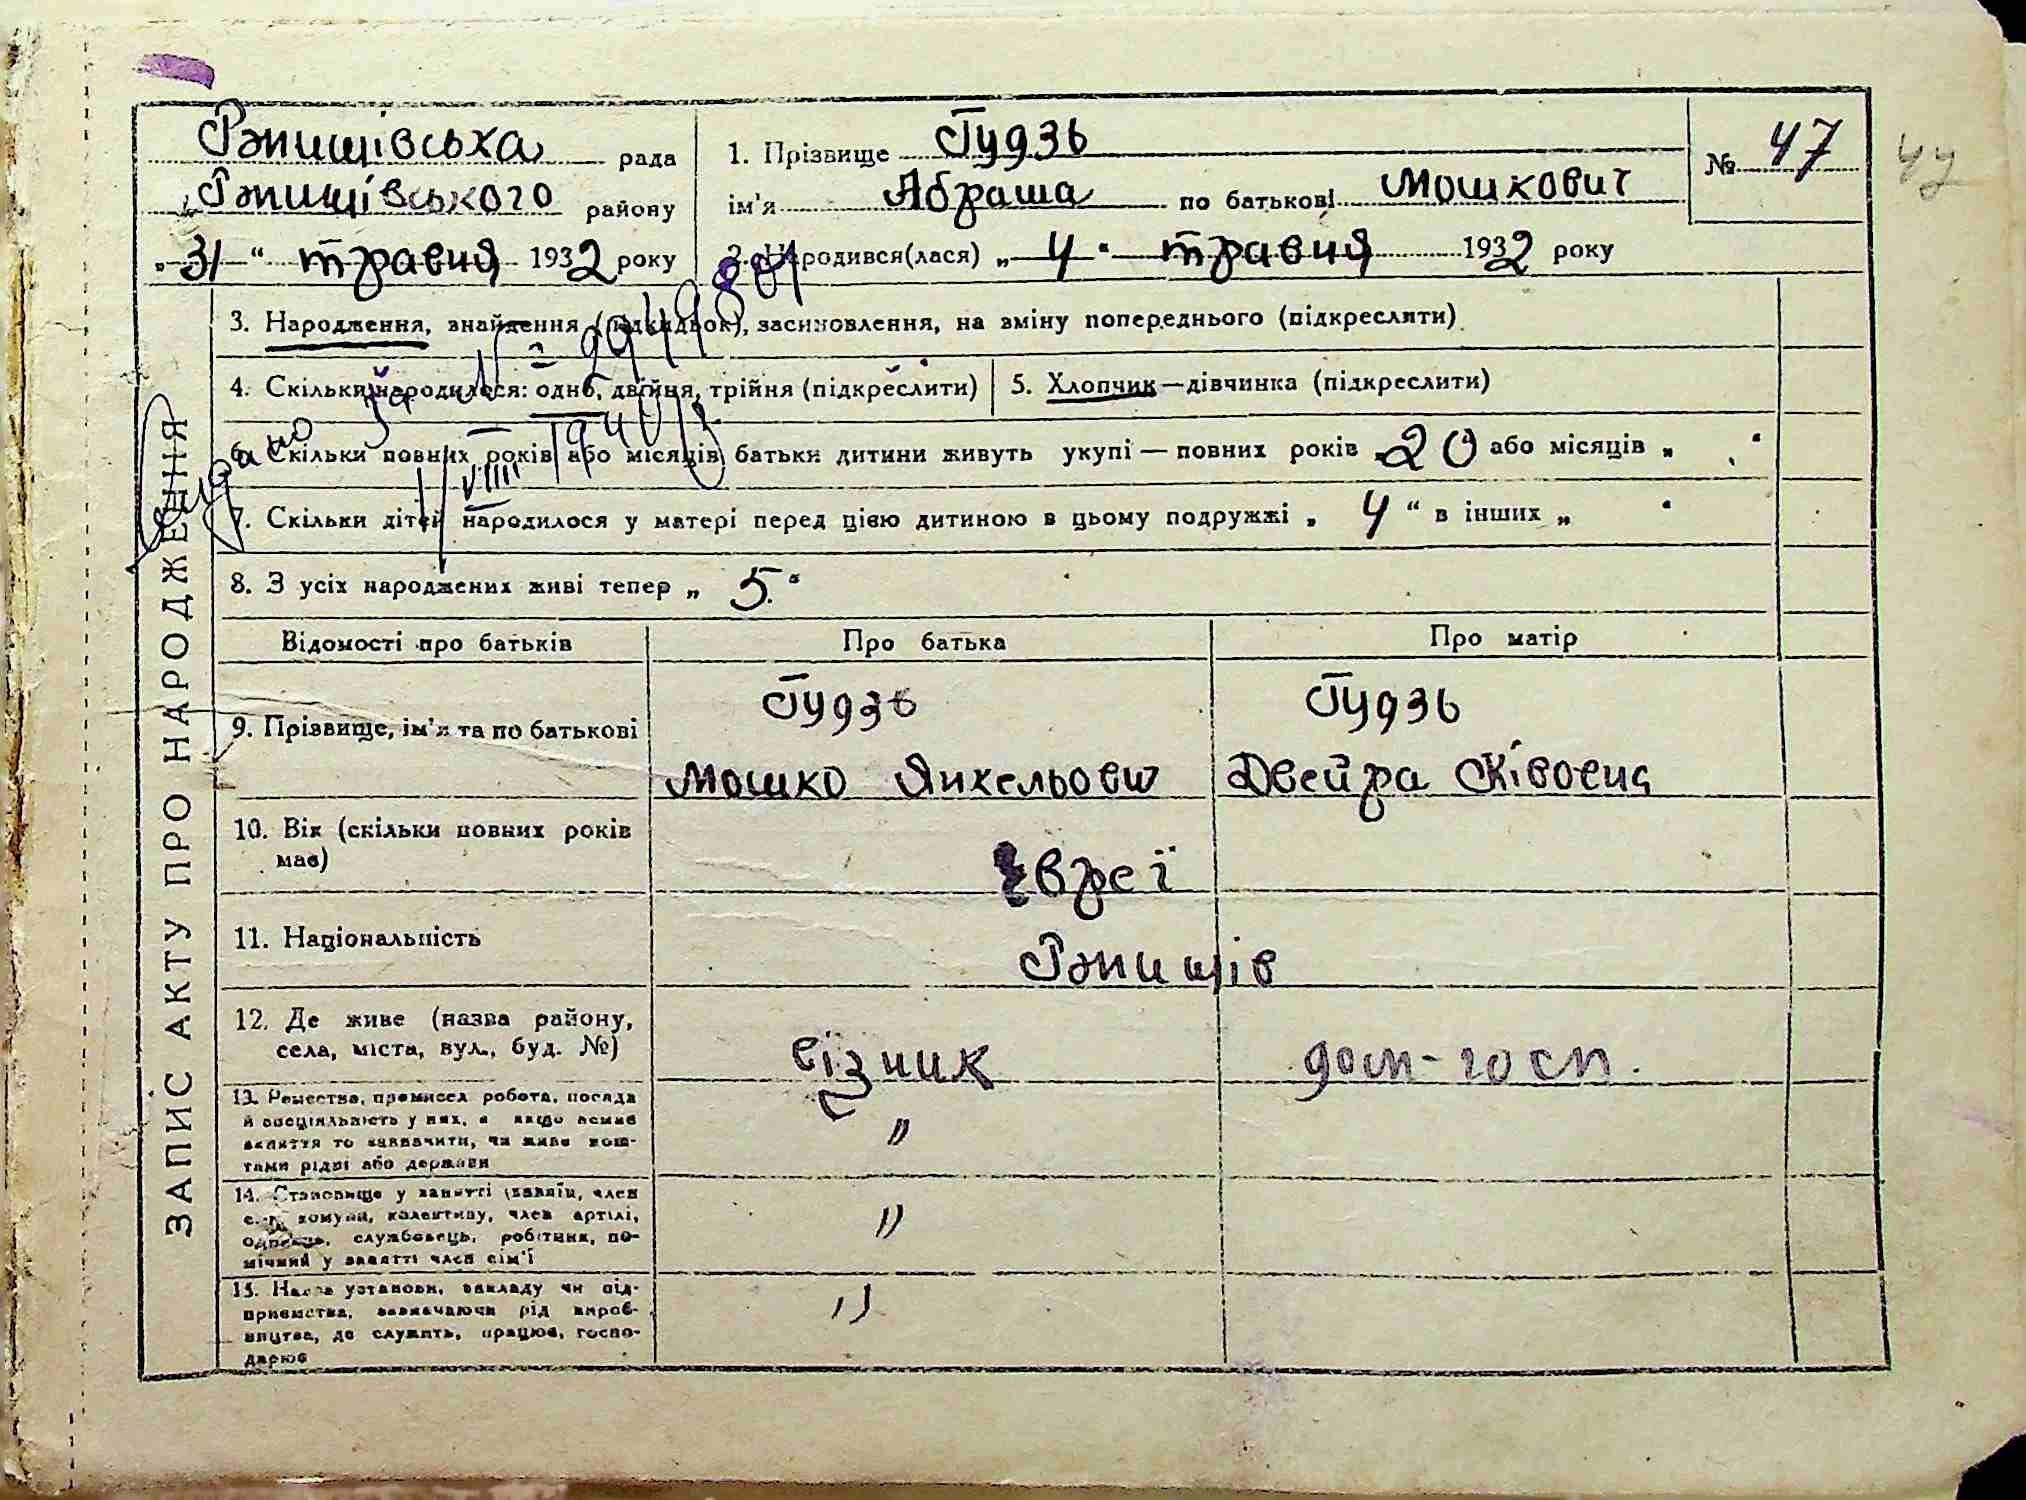 Ржищівська рада
Ржищівського району
„31“ травня 1932 року
1. Прізвище Гудзь
ім'я Абраша по батькові Мошкович
№ 47
2. Народився(лася) „4“ травня 1932 року
3. Народження, знайдення (підкидьок), засиновлення, на зміну попереднього (підкреслити)
4. Скільки народилося: одно, двійня, трійня (підкреслити)
5. Хлопчик—дівчинка (підкреслити)
6. Скільки повних років або місяців батьки дитини живуть укупі — повних років „20 або місяців „ “
7. Скільки дітей народилося у матері перед цією дитиною в цьому подружжі „ 4 “ в інших „ “
8. З усіх народжених живі тепер „ 5 “
ЗАПИС АКТУ ПРО НАРОДЖЕННЯ
Видано
1940
Відомості про батьків Про батька Про матір
9. Прізвище, ім'я та по батькові
Гудзь
Мошко Янкельович
Гудзь
Двейра Ківовна
10. Вік (скільки повних років
має)
євреї
11. Національність
Ржищів
12. Де живе (назва району,
села, міста, вул., буд. №)
візник
дом-госп.
13. Ремества, промисел робота, посада
й спеціяльність у них, а якщо немає
заняття то зазначити, чи живе кош-
тами рідні або держави
"
14. Становище у занятті (хазяїн, член
комуни, колективу, член артілі,
службовець, робітник, по-
мічний у занятті член сім'ї
"
15. Назва установи, закладу чи під-
приємства, зазначаючи рід вироб-
ництва, де служить, працює, госпо-
дарює
"